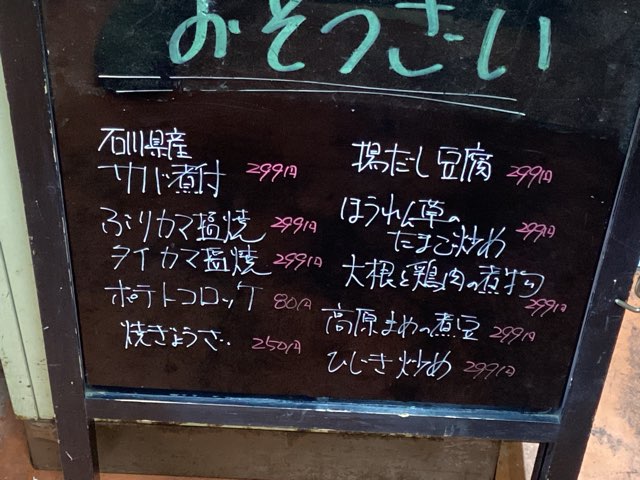 おそうざい
石川県産
サバ煮付 299円
ぶりカマ塩焼 299円
タイカマ塩焼 299円
ポテトコロッケ 80円
焼きぎょうざ 250円
揚だし豆腐 299円
ほうれん草の
たまご炒め 299円
大根と鶏肉の煮物
299円
高原まめの煮豆 299円
ひじき炒め 299円